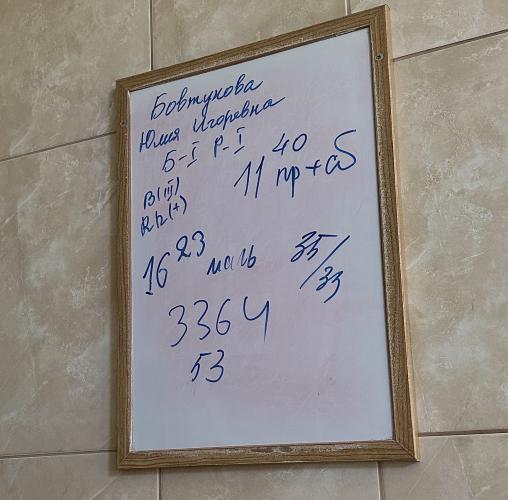 Бовтунова
Юлия Игоревна
Б-I Р-I
B(III)
Rh(+)
11 40 пр+сб
16 23 маль 35/33
3364
53